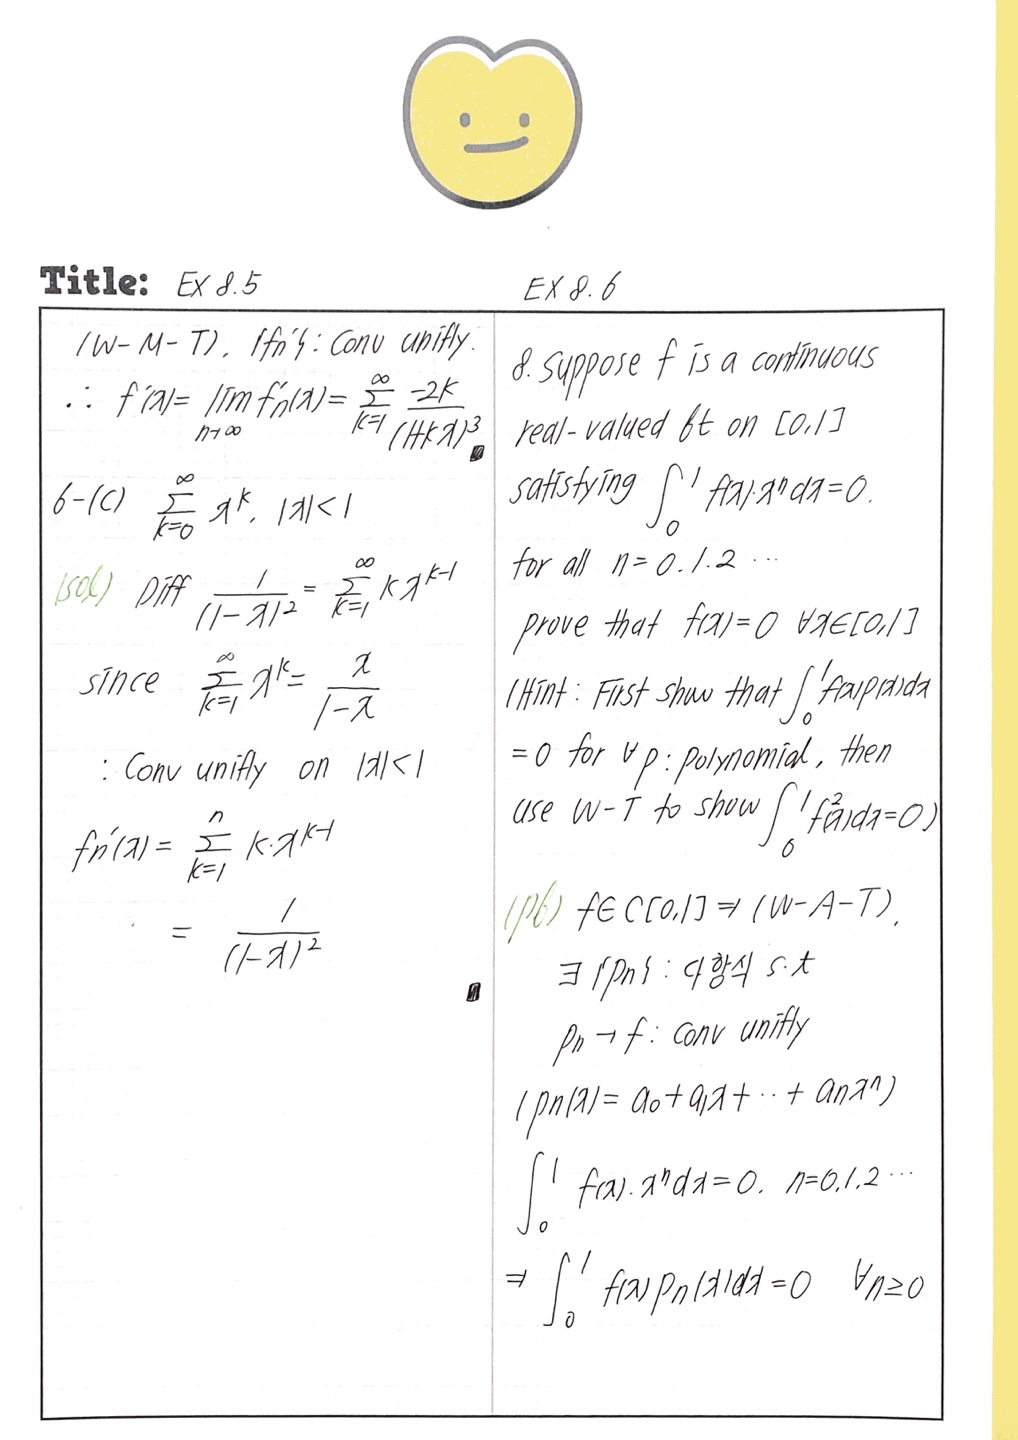 Title: EX 8.5
EX 8.6
(W-M-T). {fn'} : Conv unifly.
∴ f'(x) = lim n→∞ fn'(x) = ∞ Σ k=1 -2k / (1+kx)³
6-(c) ∞ Σ k=0 x^k, |x|<1
(sol) Diff 1 / (1-x)² = ∞ Σ k=1 k x^(k-1)
since ∞ Σ k=1 x^k = x / 1-x
: Conv unifly on |x|<1
fn'(x) = n Σ k=1 k·x^(k-1)
= 1 / (1-x)²
8. suppose f is a continuous
real-valued ft on [0,1]
satisfying ∫₀¹ f(x)·xⁿdx=0.
for all n=0.1.2 ⋯
prove that f(x)=0 ∀x∈[0,1]
(Hint : First show that ∫₀¹ f(x)p(x)dx
=0 for ∀p : polynomial, then
use W-T to show ∫₀¹ f²(x)dx=0)
(pf) f∈C[0,1] ⇒ (W-A-T).
∃{pn} : 다항식 s.t
pn → f : conv unifly
(pn(x) = a₀+a₁x+ ⋯ + anxⁿ)
∫₀¹ f(x)·xⁿdx=0. n=0.1.2 ⋯
⇒ ∫₀¹ f(x)pn(x)dx=0 ∀n≥0